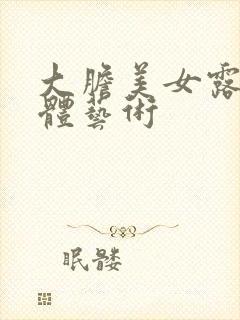 大膽美女露
體藝術
眠髅